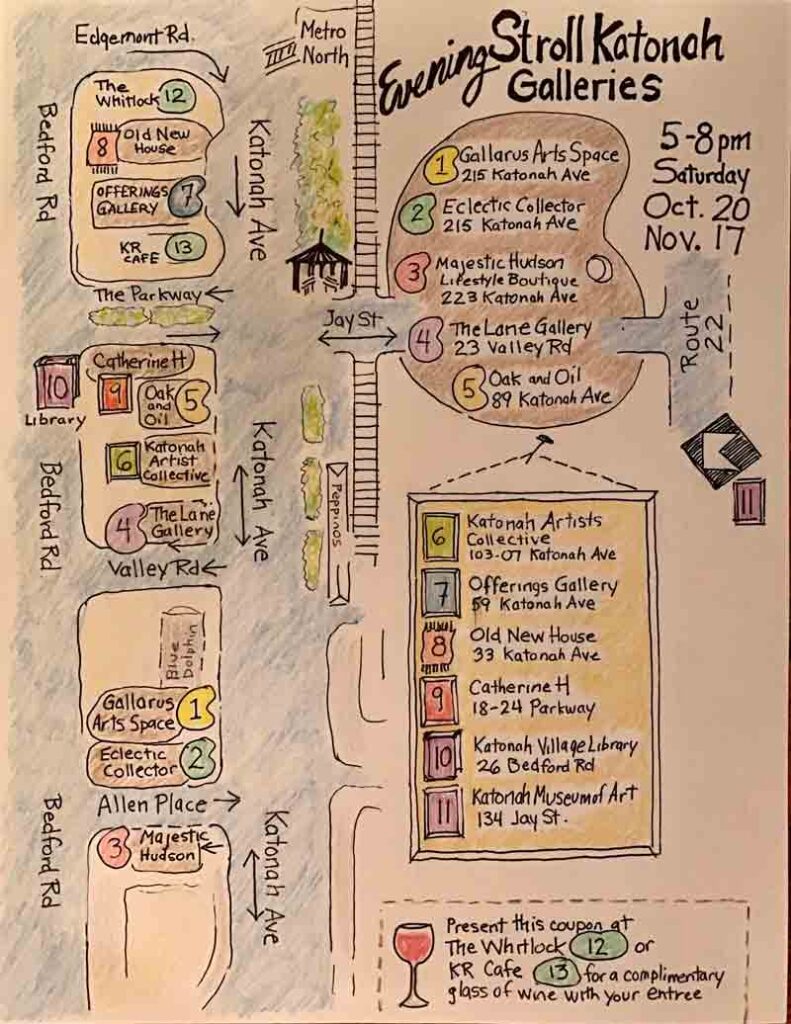 Edgemont Rd.
Metro
North
Evening Stroll Katonah
Galleries
5-8pm
Saturday
Oct. 20
Nov. 17
1 Gallarus Arts Space
215 Katonah Ave
2 Eclectic Collector
215 Katonah Ave
3 Majestic Hudson
Lifestyle Boutique
223 Katonah Ave
4 The Lane Gallery
23 Valley Rd
5 Oak and Oil
89 Katonah Ave
Route
22
11
6 Katonah Artists
Collective
103-07 Katonah Ave
7 Offerings Gallery
59 Katonah Ave
8 Old New House
33 Katonah Ave
9 Catherine H
18-24 Parkway
10 Katonah Village Library
26 Bedford Rd
11 Katonah Museum of Art
134 Jay St.
Present this coupon at
The Whitlock 12 or
KR Cafe 13 for a complimentary
glass of wine with your entree
Bedford Rd
The
Whitlock 12
8 Old New
House
OFFERINGS 7
GALLERY
KR 13
CAFE
Katonah Ave
The Parkway
Jay St
10
Library
Catherine H
9
Oak
and
Oil
5
6 Katonah
Artist
Collective
4 The Lane
Gallery
Bedford Rd.
Katonah Ave
Peppinos
Valley Rd
Blue
Dolphin
Gallarus
Arts Space 1
Eclectic
Collector 2
Allen Place
Bedford Rd
3 Majestic
Hudson
Katonah Ave